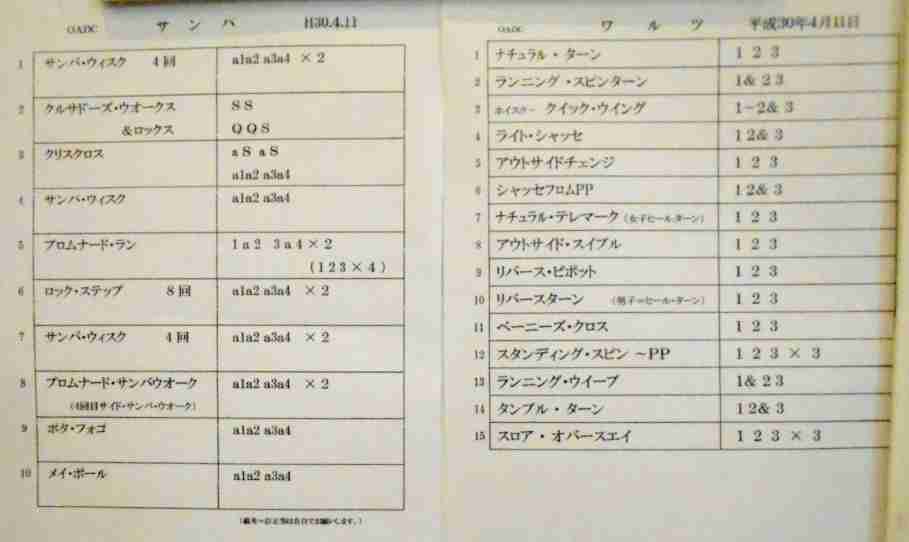 OADC サンバ H30.4.11
1 サンバ・ウィスク 4回 a1a2 a3a4 ×2
2 クルサドーズ・ウオークス SS
&ロックス QQS
3 クリスクロス aS aS
a1a2 a3a4
4 サンバ・ウィスク a1a2 a3a4
5 プロムナード・ラン 1a2 3a4×2
(123×4)
6 ロック・ステップ 8回 a1a2 a3a4 ×2
7 サンバ・ウィスク 4回 a1a2 a3a4 ×2
8 プロムナード・サンバウオーク a1a2 a3a4 ×2
(4回目サイド・サンバ・ウオーク)
9 ボタ・フォゴ a1a2 a3a4
10 メイ・ポール a1a2 a3a4
OADC ワルツ 平成30年4月11日
1 ナチュラル・ターン 1 2 3
2 ランニング・スピンターン 1& 2 3
3 ホイスクー クイック・ウイング 1-2& 3
4 ライト・シャッセ 1 2& 3
5 アウトサイドチェンジ 1 2 3
6 シャッセフロムPP 1 2& 3
7 ナチュラル・テレマーク (女子ヒールターン) 1 2 3
8 アウトサイド・スイブル 1 2 3
9 リバース・ピボット 1 2 3
10 リバースターン (男子=ヒール・ターン) 1 2 3
11 ベーニーズ・クロス 1 2 3
12 スタンディング・スピン ~PP 1 2 3 × 3
13 ランニング・ウイーブ 1& 2 3
14 タンブル・ターン 1 2& 3
15 スロア・オバースエイ 1 2 3 × 3